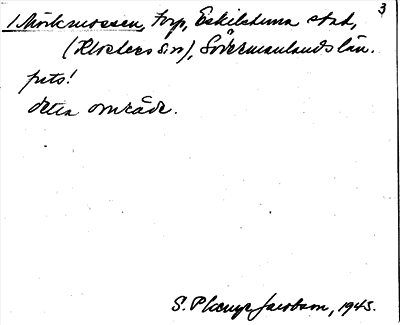 3
1. Mörkmossen, torp, Eskilstuna stad,
(Klosters sn), Södermanlands län.
puts!
detta område.
S. Plenge Jacobson, 1945.